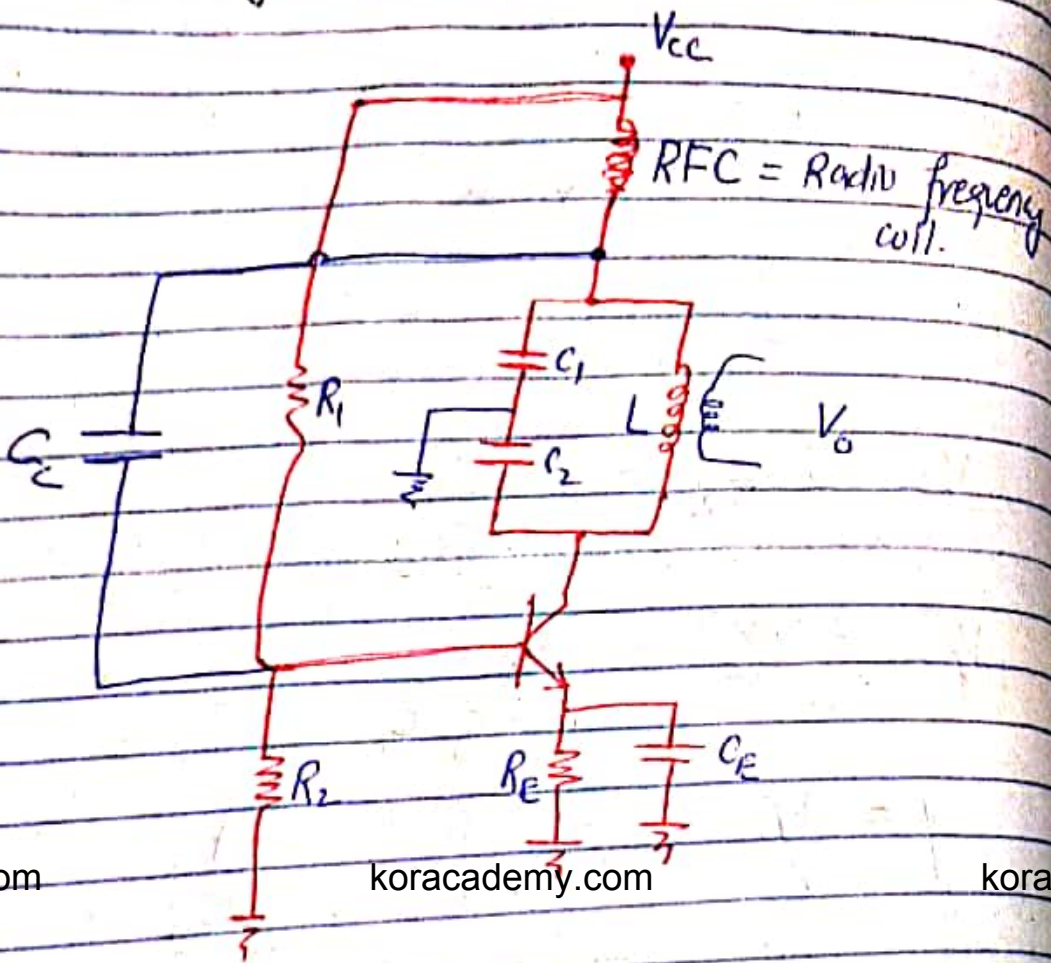 VCC
RFC = Radio frequency
coil.
C1
R1
L
Vo
Cc
C2
R2
RE
CE
om
koracademy.com
kora